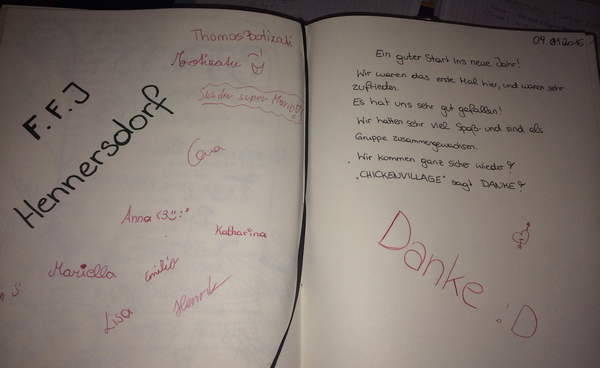 Thomas Botizati
F.F.J
Hennersdorf
Cora
Anna <3 :*
Katharina
Mariella
Emilio
Lisa
Henrik
09.01.2015
Ein guter Start ins neue Jahr!
Wir waren das erste Mal hier, und waren sehr
zufrieden.
Es hat uns sehr gut gefallen!
Wir hatten sehr viel Spaß und sind als
Gruppe zusammengewachsen.
Wir kommen ganz sicher wieder!
"CHICKENVILLAGE" sagt DANKE!
Danke :D